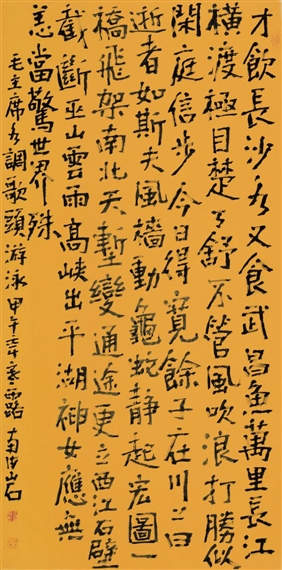 才飲長沙水又食武昌魚萬里長江
橫渡極目楚天舒不管風吹浪打勝似
閑庭信步今日得寬餘子在川上曰
逝者如斯夫風檣動龜蛇静起宏圖一
橋飛架南北天塹變通途更立西江石壁
截斷巫山雲雨高峽出平湖神女應無
恙當驚世界殊
毛主席水調歌頭游泳甲午年寒露南海山石